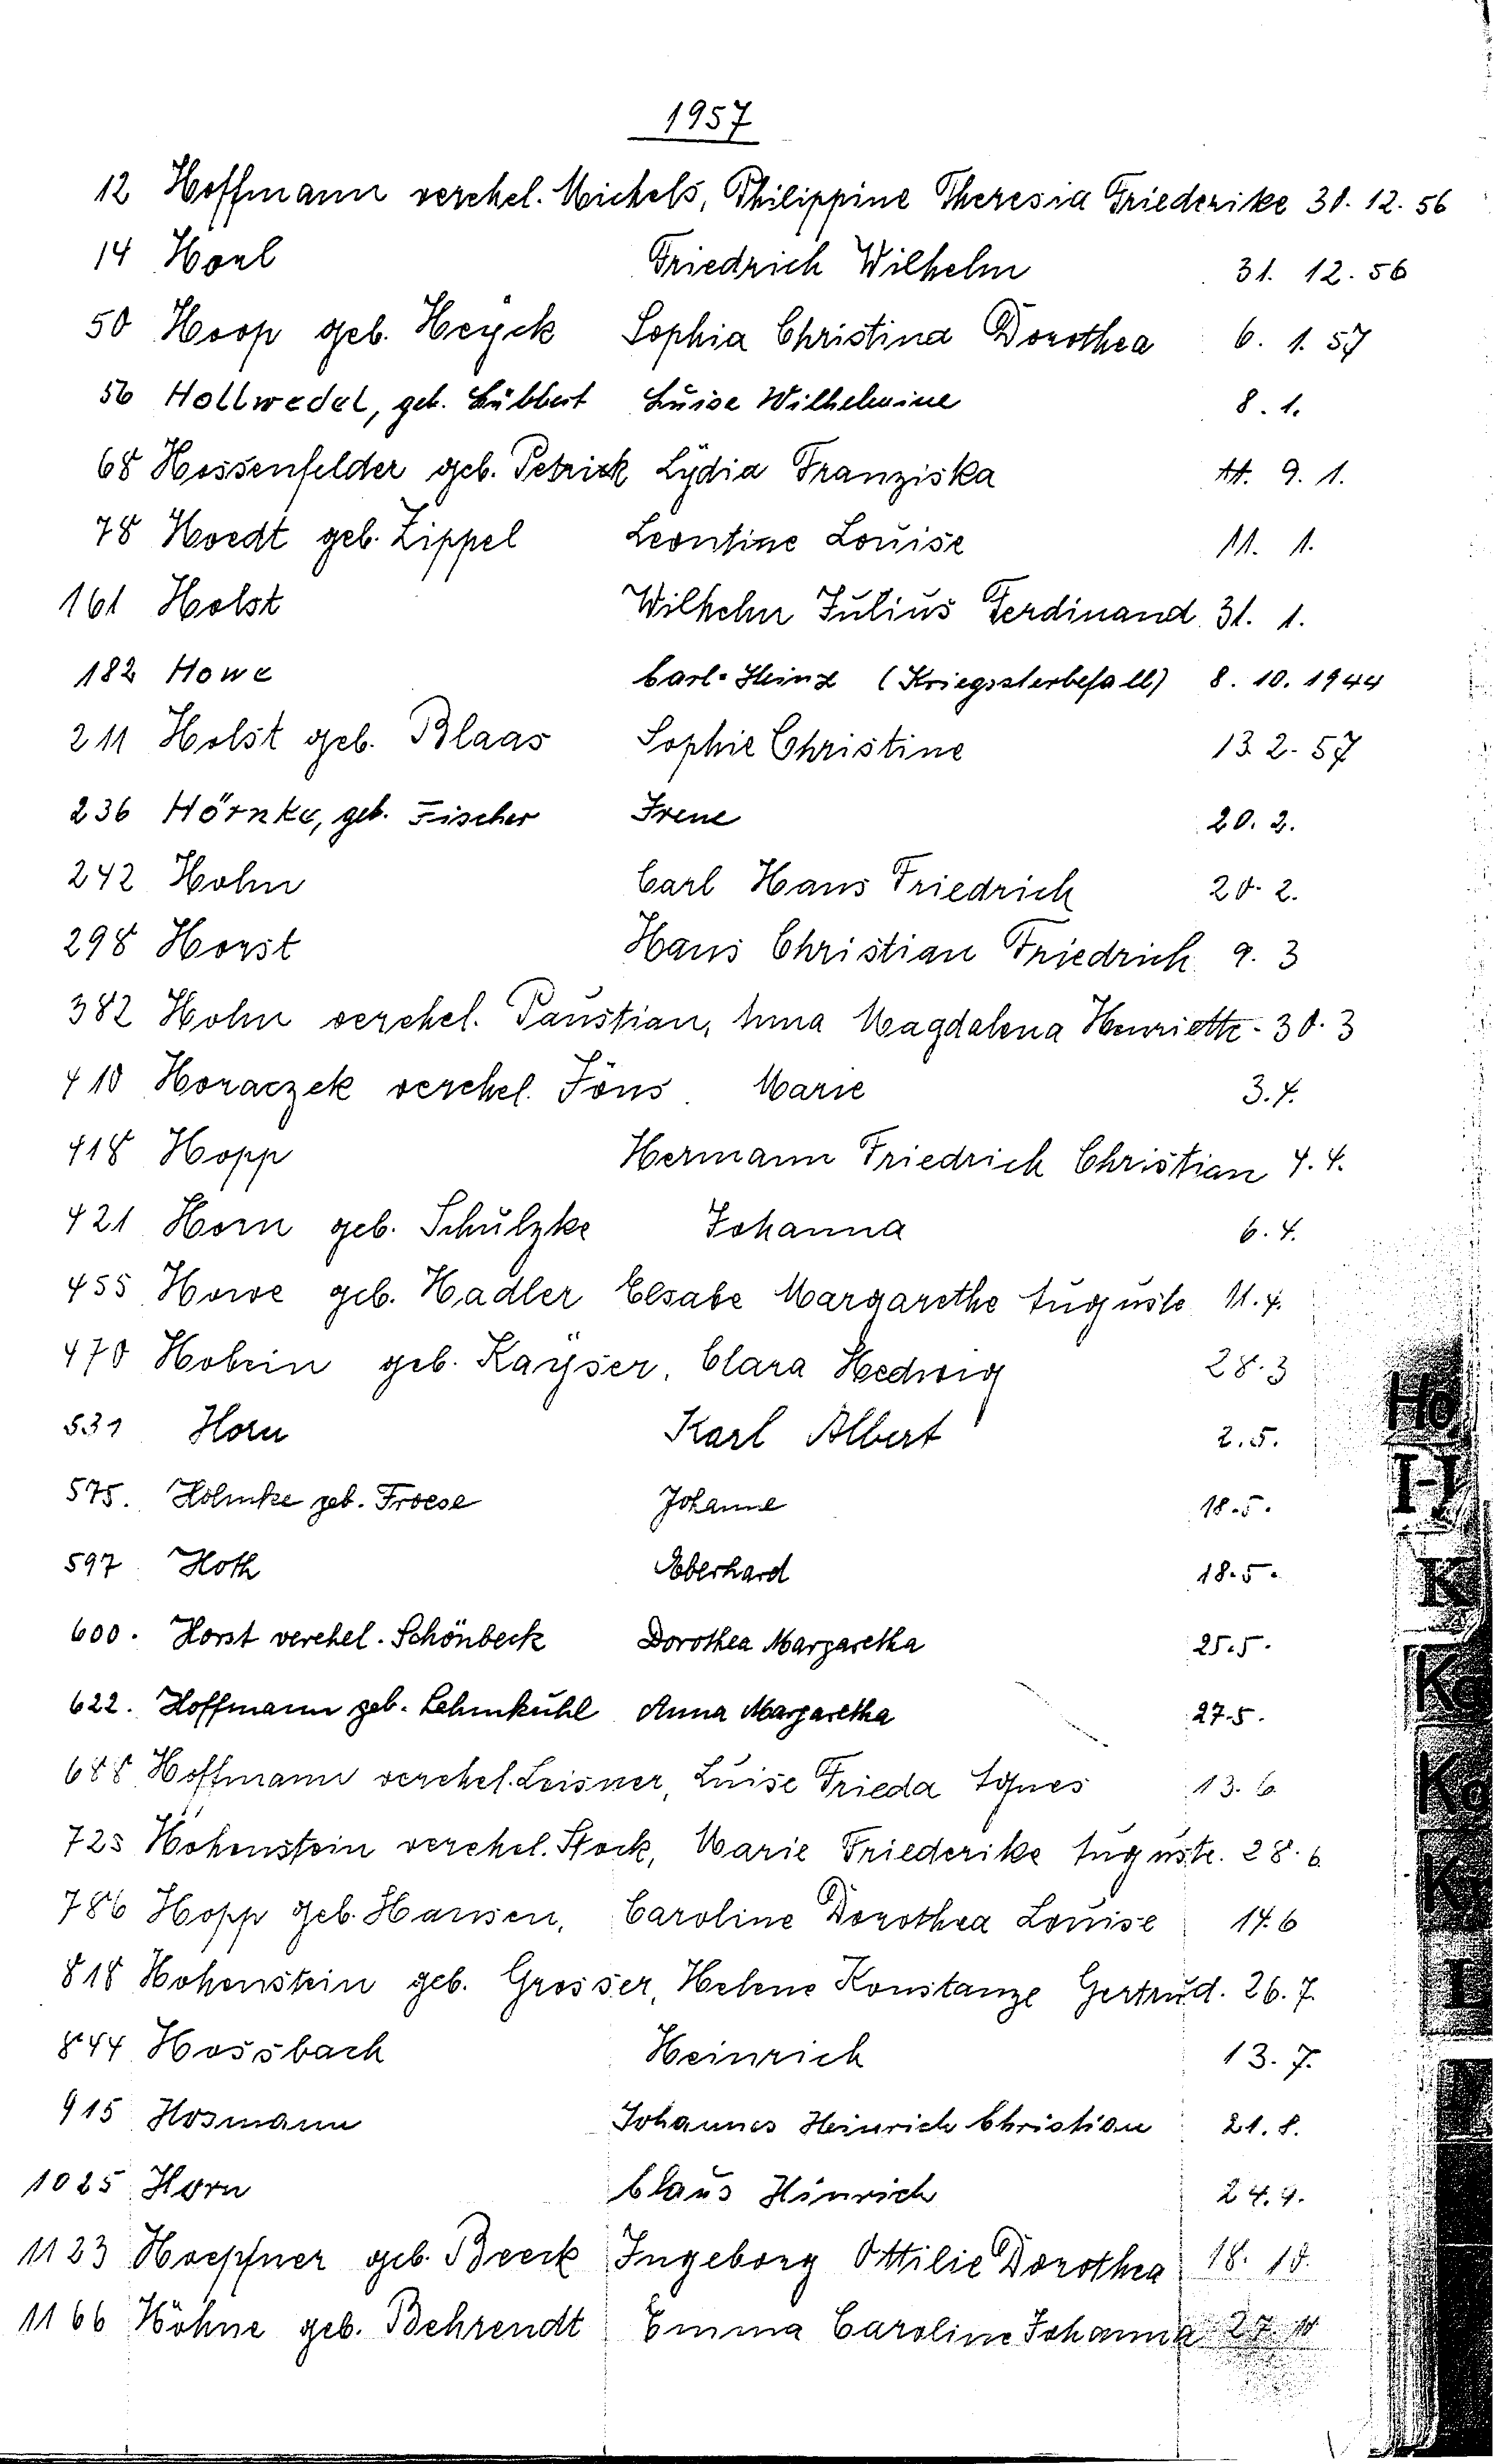 1957
12 Hoffmann verehel. Michels, Philippine Theresia Friederike 30. 12. 56
14 Horl Friedrich Wilhelm 31. 12. 56
50 Hoop geb. Heyck Sophia Christina Dorothea 6. 1. 57
56 Hollwedel, geb. Lübbert Luise Wilhelmine 8. 1.
68 Hossenfelder geb. Petrick Lydia Franziska 9. 1.
78 Hoedt geb. Zippel Leontine Louise 11. 1.
161 Holst Wilhelm Julius Ferdinand 31. 1.
182 Howe Carl-Heinz (Kriegssterbefall) 8. 10. 1944
211 Holst geb. Blaas Sophie Christine 13. 2. 57
236 Hörnke, geb. Fischer Irene 20. 2.
242 Hohn Carl Hans Friedrich 20. 2.
298 Horst Hans Christian Friedrich 9. 3
382 Hohn verehel. Paustian, Anna Magdalena Henriette - 30. 3
410 Horaczek verehel. Jöns. Marie 3. 4.
418 Hopp Hermann Friedrich Christian 4. 4.
421 Horn geb. Schulzke Johanna 6. 4.
455 Howe geb. Hadler Elsabe Margarethe Auguste 11. 4.
470 Hobein geb. Kayser, Clara Hedwig 28. 3
531 Horn Karl Albert 2. 5.
575. Holmke geb. Froese Johanne 18. 5.
597 Hoth Eberhard 18. 5.
600. Horst verehel. Schönbeck Dorothea Margaretha 25. 5.
622. Hoffmann geb. Lehmkuhl Anna Margaretha 27. 5.
688 Hoffmann verehel. Leisner, Luise Frieda Agnes 13. 6.
725 Hohenstein verehel. Stock, Marie Friederike Auguste. 28. 6.
786 Hopp geb. Hansen, Caroline Dorothea Louise 14. 6
818 Hohenstein geb. Grosser, Helene Konstanze Gertrud. 26. 7.
844 Hossbach Heinrich 13. 7.
915 Hosmann Johannes Heinrich Christian 21. 8.
1025 Horn Claus Hinrich 24. 9.
1123 Hoepfner geb. Beeck Ingeborg Ottilie Dorothea 18. 10.
1166 Höhne geb. Behrendt Emma Caroline Johanna 27. 10
Ho
H
K
Ka
Ko
K
L